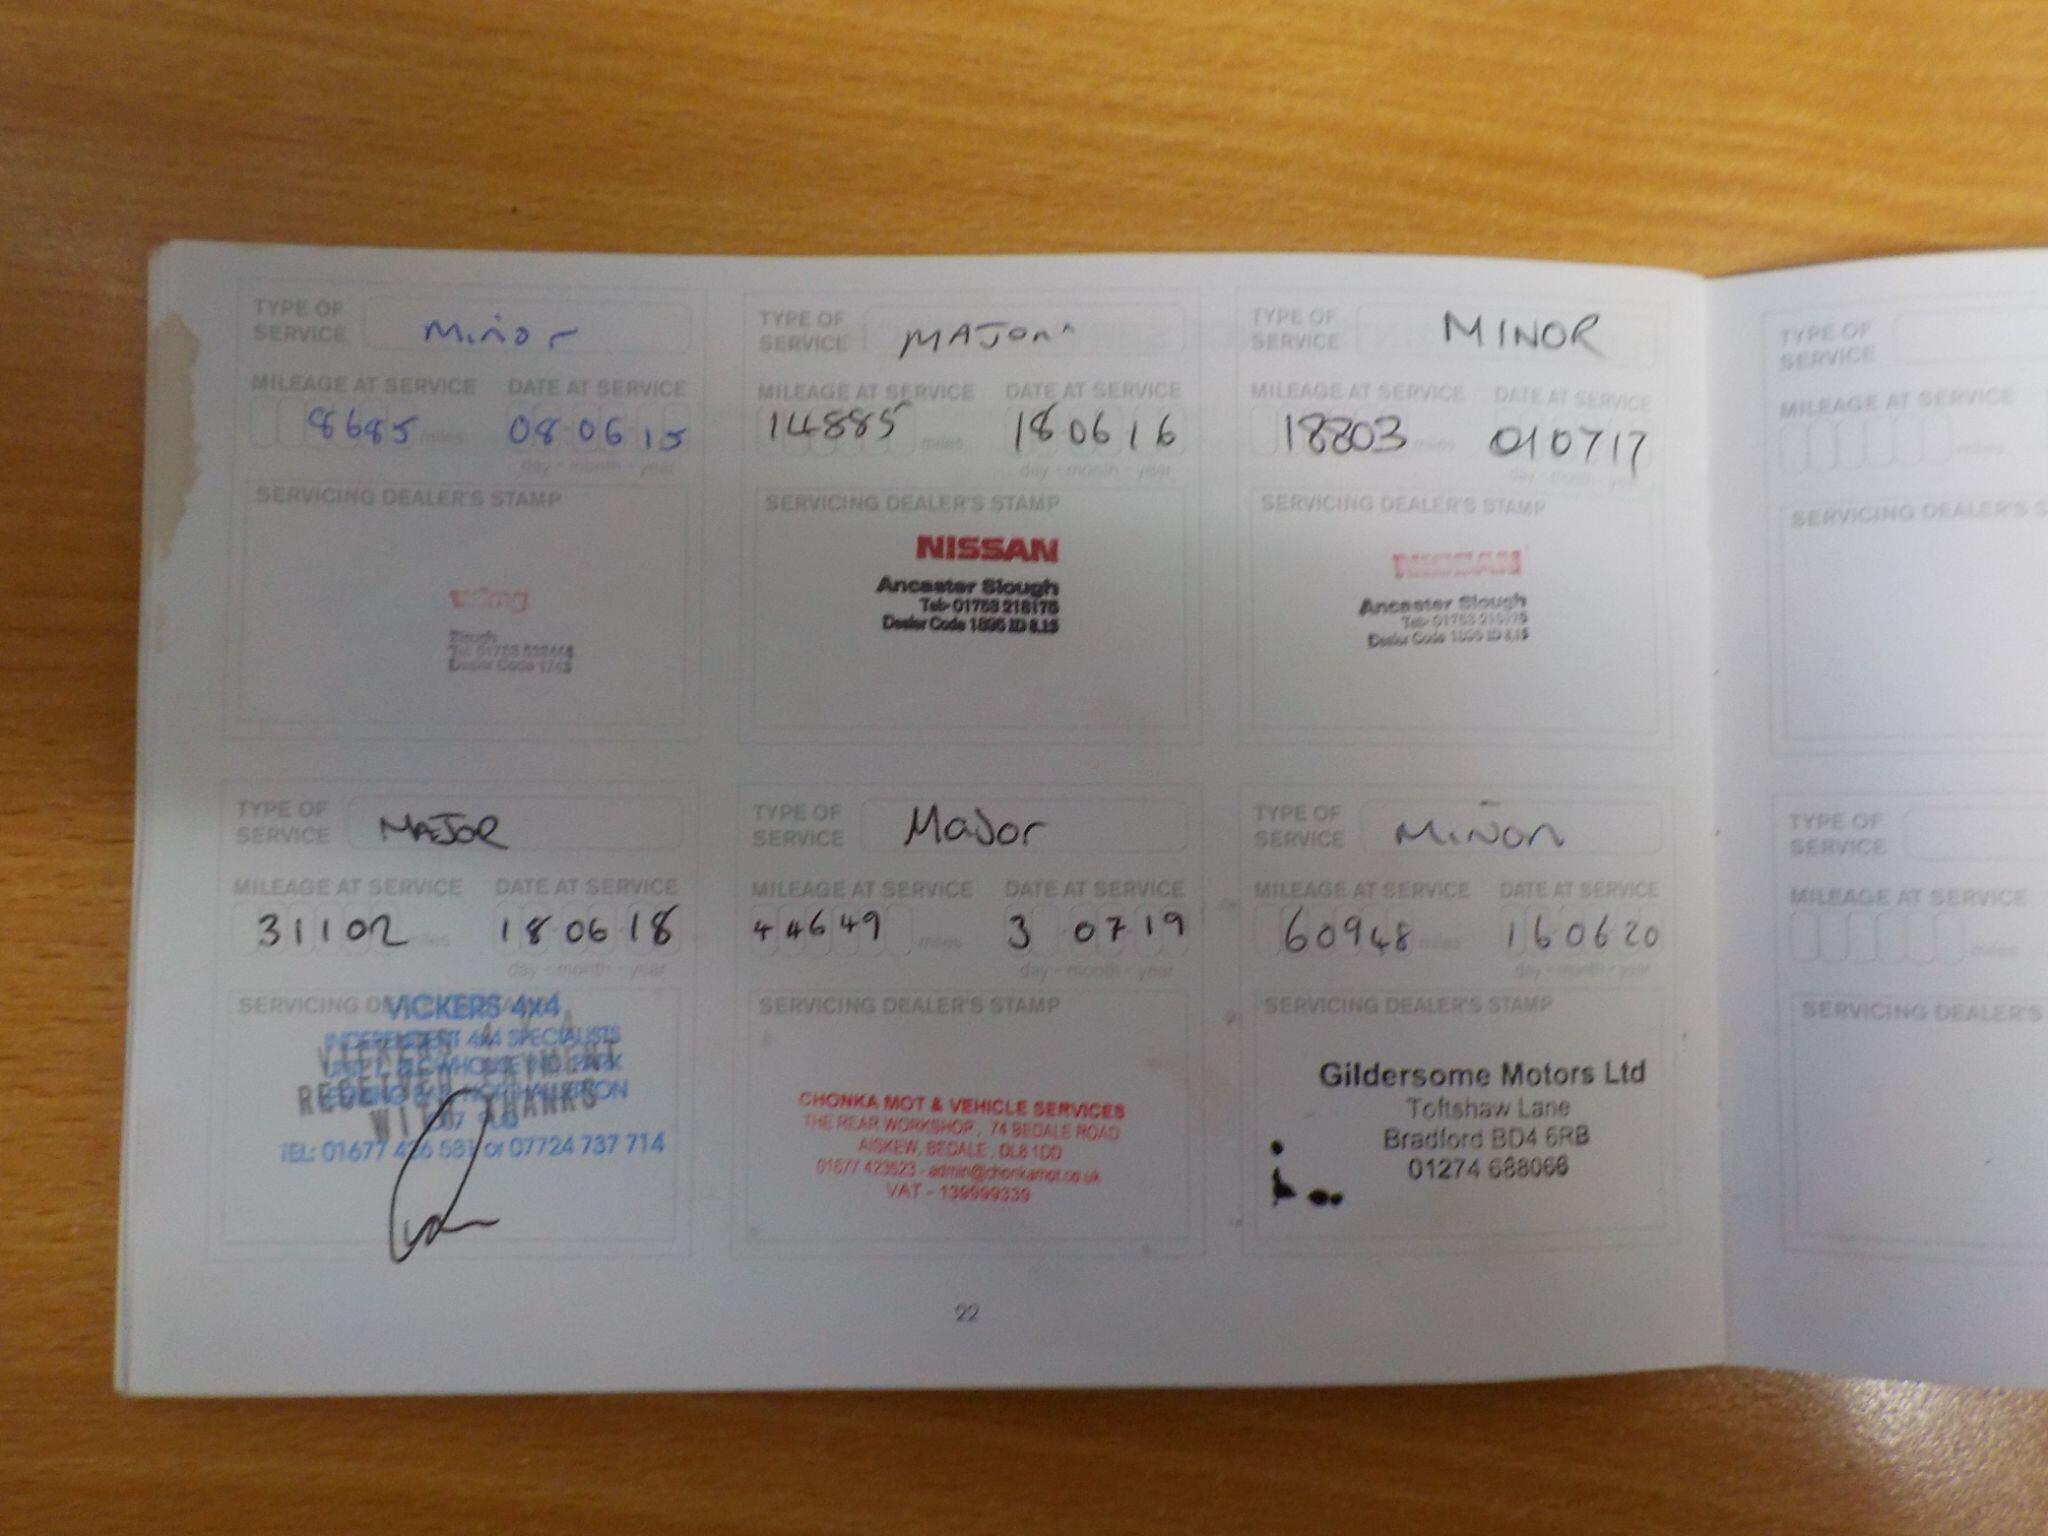 TYPE OF
SERVICE
Minor
MILEAGE AT SERVICE
DATE AT SERVICE
8685 miles
08 06 15
day - month - year
SERVICING DEALER'S STAMP
Slough
Dealer Code
TYPE OF
SERVICE
MAJOR
MILEAGE AT SERVICE
DATE AT SERVICE
14885 miles
18 06 16
day - month - year
SERVICING DEALER'S STAMP
NISSAN
Ancaster Slough
Tel: 01753 218175
Dealer Code 1895 ID 8.15
TYPE OF
SERVICE
MINOR
MILEAGE AT SERVICE
DATE AT SERVICE
18803 miles
01 07 17
day - month - year
SERVICING DEALER'S STAMP
NISSAN
Ancaster Slough
Dealer Code
TYPE OF
SERVICE
TYPE OF
SERVICE
MAJOR
MILEAGE AT SERVICE
DATE AT SERVICE
31102 miles
18 06 18
day - month - year
SERVICING
VICKERS 4x4
INDEPENDENT 4X4 SPECIALISTS
RECEIVED
WITH THANKS
TEL: 01677 426 581 or 07724 737 714
TYPE OF
SERVICE
Major
MILEAGE AT SERVICE
DATE AT SERVICE
44649 miles
3 07 19
day - month - year
SERVICING DEALER'S STAMP
CHONKA MOT & VEHICLE SERVICES
THE REAR WORKSHOP, 74 BEDALE ROAD
AISKEW, BEDALE, DL8 1DD
01677 423523 - admin@chonkamot.co.uk
VAT - 139999339
TYPE OF
SERVICE
Minor
MILEAGE AT SERVICE
DATE AT SERVICE
60948 miles
16 06 20
day - month - year
SERVICING DEALER'S STAMP
Gildersome Motors Ltd
Toftshaw Lane
Bradford BD4 6RB
01274 688066
22
TYPE OF
SERVICE
MILEAGE AT SERVICE
miles
SERVICING DEALER'S
TYPE OF
SERVICE
MILEAGE AT SERVICE
miles
SERVICING DEALER'S